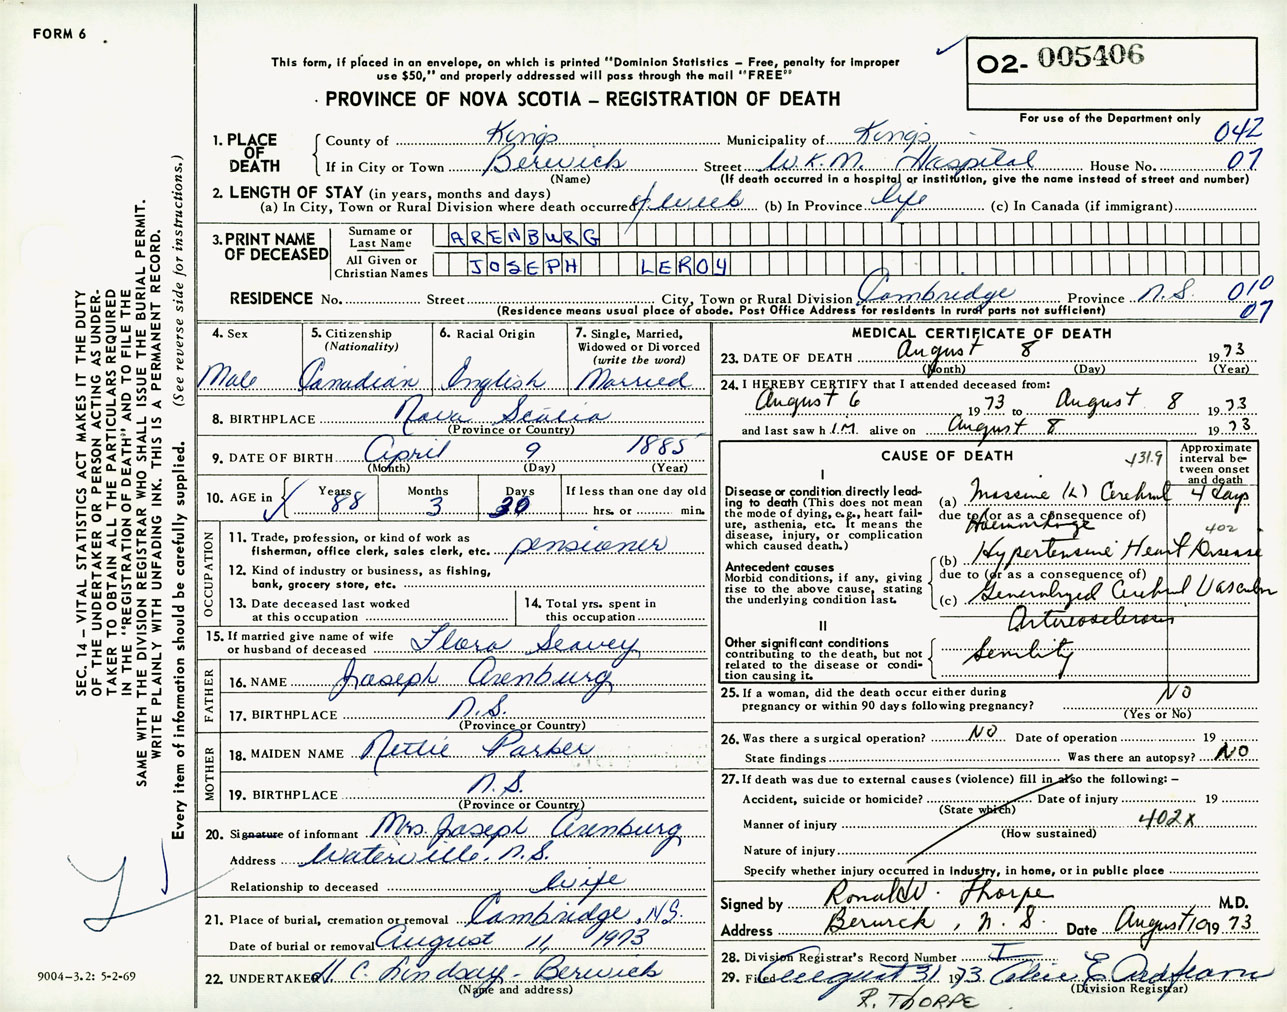 FORM 6
This form, if placed in an envelope, on which is printed "Dominion Statistics – Free, penalty for improper
use $50," and properly addressed will pass through the mail "FREE"
PROVINCE OF NOVA SCOTIA – REGISTRATION OF DEATH
02- 005406
For use of the Department only
1. PLACE OF DEATH
County of Kings Municipality of Kings 042
If in City or Town Berwick Street W.K.M. Hospital House No. 07
(Name) (If death occurred in a hospital or institution, give the name instead of street and number)
2. LENGTH OF STAY (in years, months and days)
(a) In City, Town or Rural Division where death occurred week (b) In Province life (c) In Canada (if immigrant)
3. PRINT NAME OF DECEASED
Surname or Last Name ARENBURG
All Given or Christian Names JOSEPH LEROY
RESIDENCE No. Street City, Town or Rural Division Cambridge Province N.S. 010
(Residence means usual place of abode. Post Office Address for residents in rural parts not sufficient) 07
4. Sex Male
5. Citizenship (Nationality) Canadian
6. Racial Origin English
7. Single, Married, Widowed or Divorced (write the word) Married
8. BIRTHPLACE Nova Scotia
(Province or Country)
9. DATE OF BIRTH April 9 1885
(Month) (Day) (Year)
10. AGE in Years 88 Months 3 Days 30 If less than one day old hrs. or min.
OCCUPATION
11. Trade, profession, or kind of work as fisherman, office clerk, sales clerk, etc. pensioner
12. Kind of industry or business, as fishing, bank, grocery store, etc.
13. Date deceased last worked at this occupation
14. Total yrs. spent in this occupation
15. If married give name of wife or husband of deceased Flora Seavey
FATHER
16. NAME Joseph Arenburg
17. BIRTHPLACE N.S.
(Province or Country)
MOTHER
18. MAIDEN NAME Nettie Parker
19. BIRTHPLACE N.S.
(Province or Country)
20. Signature of informant Mrs. Joseph Arenburg
Address Waterville, N.S.
Relationship to deceased Wife
21. Place of burial, cremation or removal Cambridge, N.S.
Date of burial or removal August 11, 1973
22. UNDERTAKER H. C. Lindsay - Berwick
(Name and address)
MEDICAL CERTIFICATE OF DEATH
23. DATE OF DEATH August 8 1973
(Month) (Day) (Year)
24. I HEREBY CERTIFY that I attended deceased from:
August 6 1973 to August 8 1973
and last saw h I.M. alive on August 8 1973
CAUSE OF DEATH 431.9
Approximate interval between onset and death
I
Disease or condition directly leading to death (This does not mean the mode of dying, e.g., heart failure, asthenia, etc. It means the disease, injury, or complication which caused death.)
(a) Massive (L) Cerebral 4 days
due to (or as a consequence of)
Haemorrhage 402
(b) Hypertensive Heart Disease
Antecedent causes
Morbid conditions, if any, giving rise to the above cause, stating the underlying condition last.
due to (or as a consequence of)
(c) Generalized Cerebral Vascular
Arteriosclerosis
II
Other significant conditions contributing to the death, but not related to the disease or condition causing it.
Senility
25. If a woman, did the death occur either during pregnancy or within 90 days following pregnancy? NO
(Yes or No)
26. Was there a surgical operation? NO Date of operation 19
State findings Was there an autopsy? NO
27. If death was due to external causes (violence) fill in also the following: –
Accident, suicide or homicide? Date of injury 19
(State which)
Manner of injury 402X
(How sustained)
Nature of injury
Specify whether injury occurred in industry, in home, or in public place
Signed by Ronald W. Thorpe M.D.
Address Berwick, N.S. Date August 10 1973
28. Division Registrar's Record Number
29. Filed August 31 1973
(Division Registrar)
R. THORPE
SEC. 14 – VITAL STATISTICS ACT MAKES IT THE DUTY
OF THE UNDERTAKER OR PERSON ACTING AS UNDER-
TAKER TO OBTAIN ALL THE PARTICULARS REQUIRED
IN THE "REGISTRATION OF DEATH" AND TO FILE THE
SAME WITH THE DIVISION REGISTRAR WHO SHALL ISSUE THE BURIAL PERMIT.
WRITE PLAINLY WITH UNFADING INK. THIS IS A PERMANENT RECORD.
Every item of information should be carefully supplied. (See reverse side for instructions.)
9004-3.2: 5-2-69